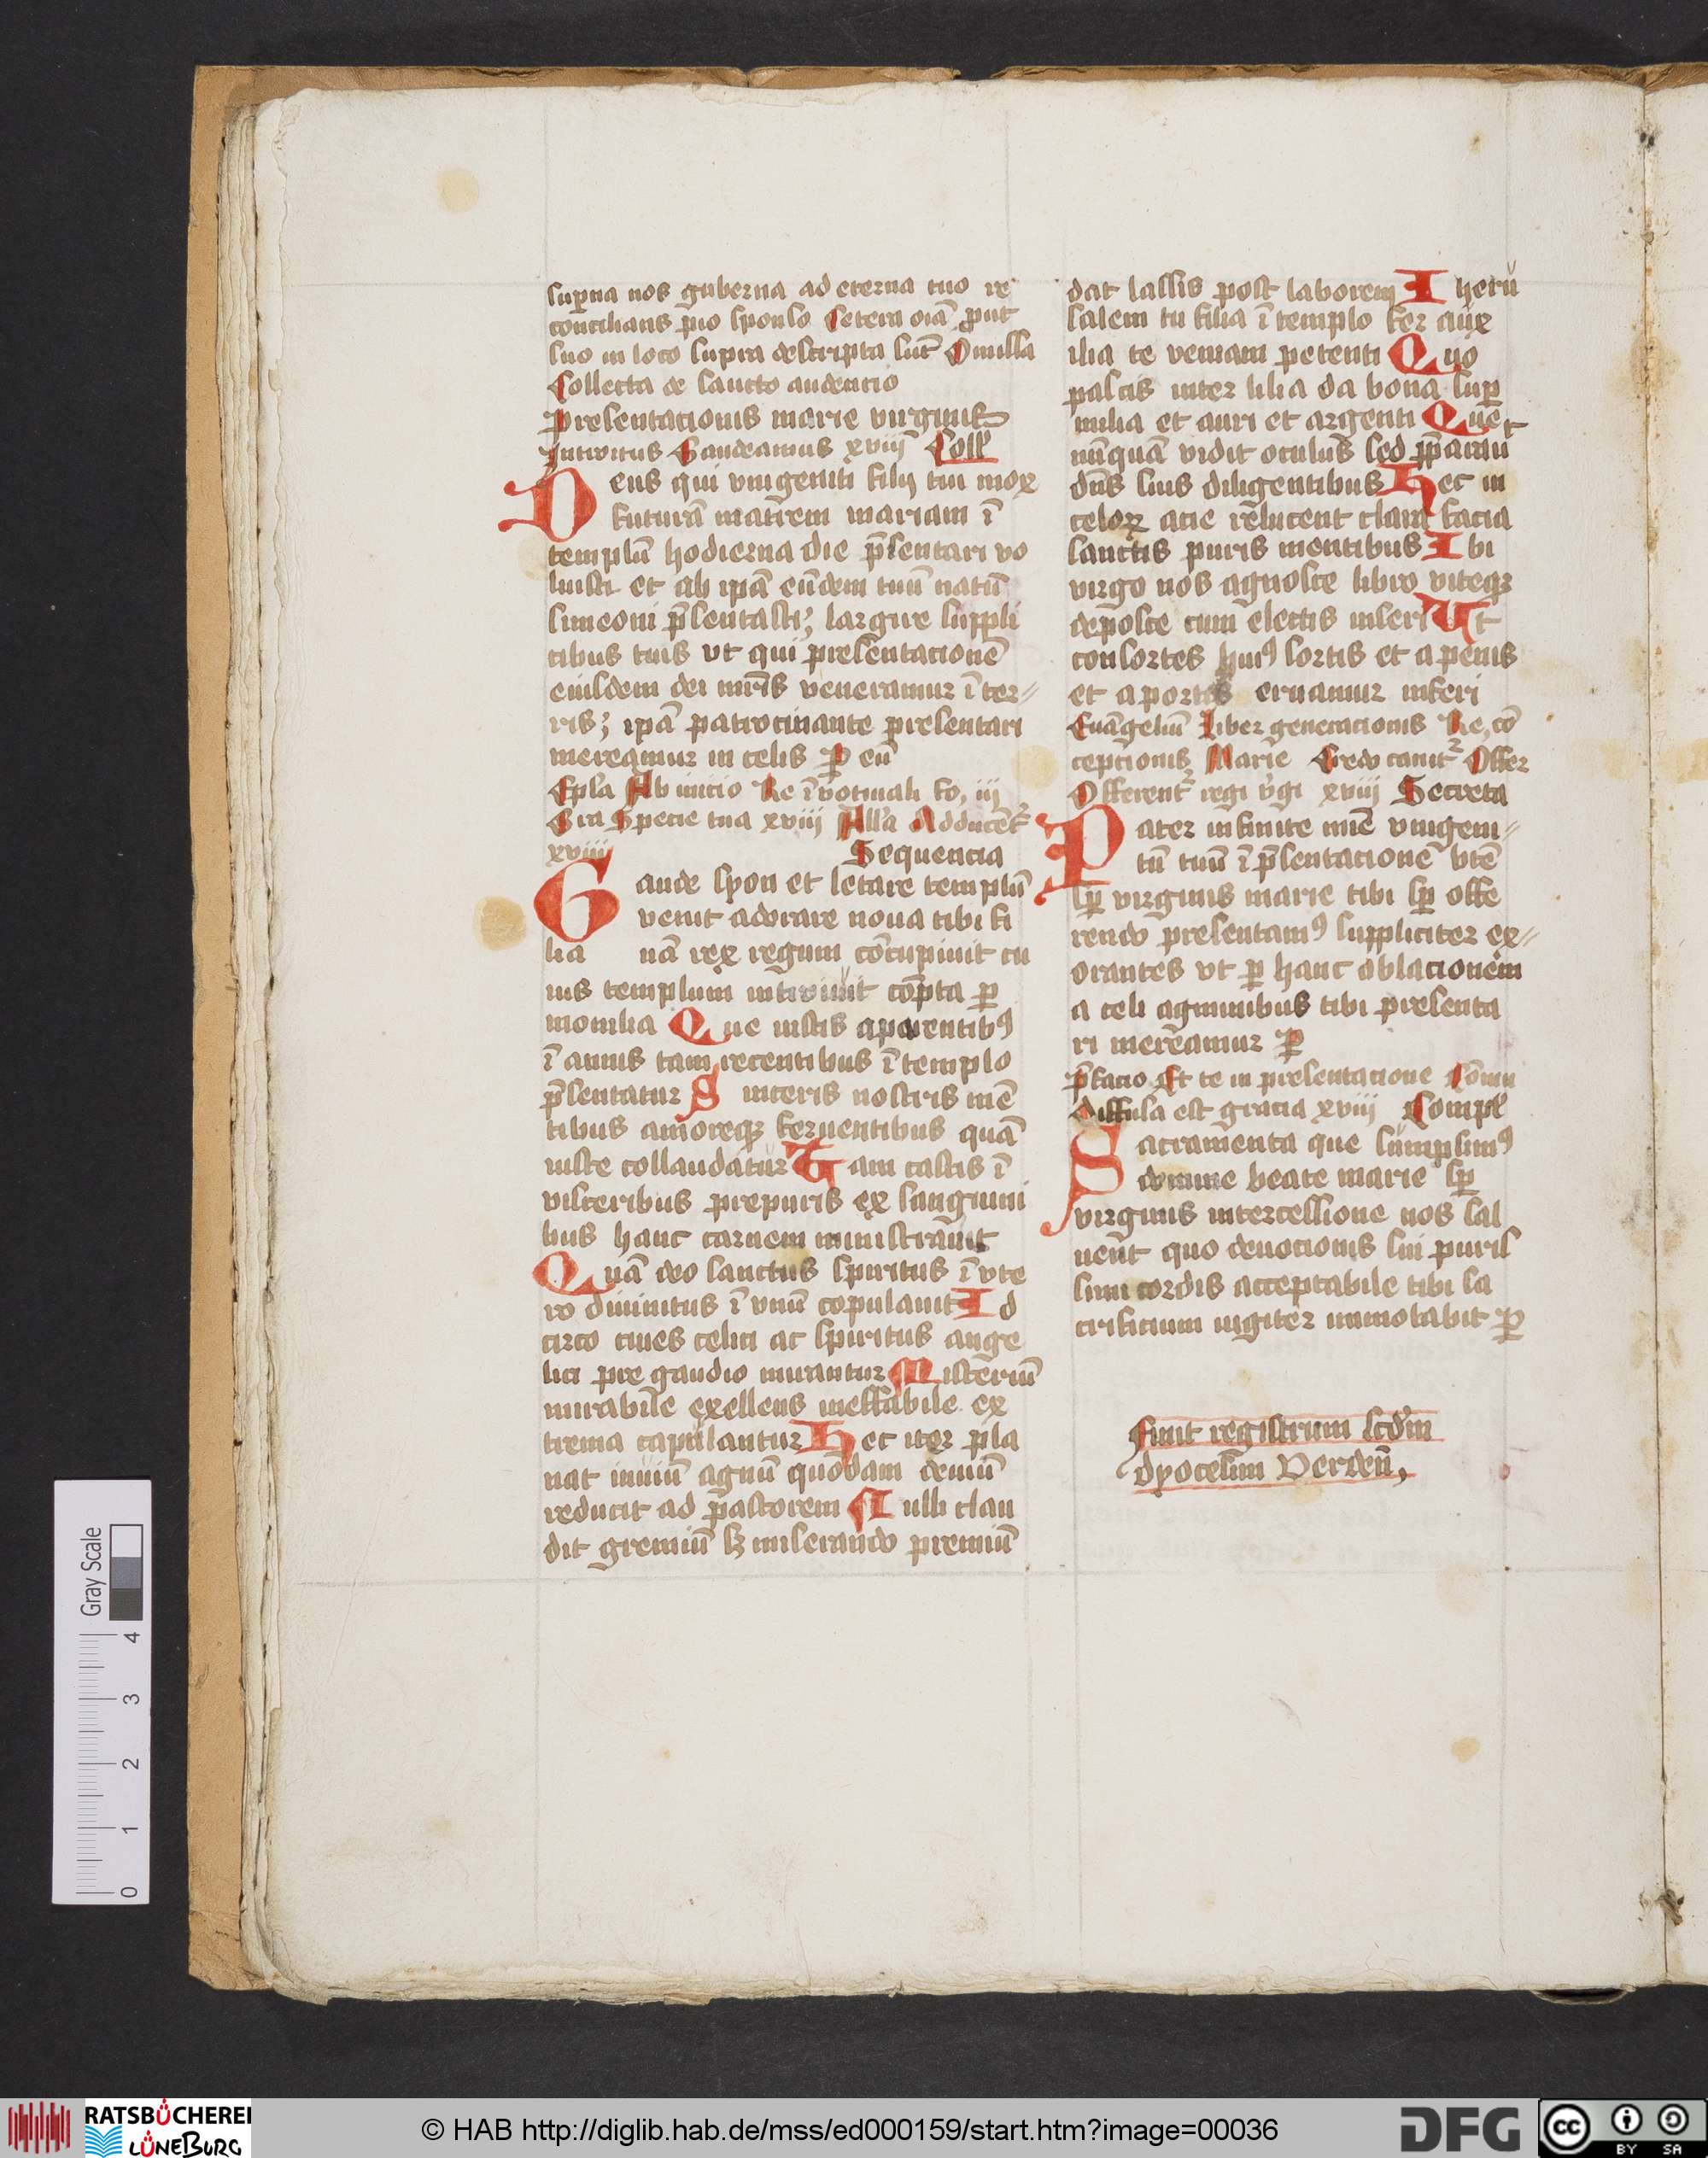 sup̲na nos guberna ad eterna tuo re
concilians pio sponso Cetera oīa ꝓut
suo in loco supra descripta sūt Omissa
Collecta de sancto audencio
Presentacionis marie virginis
Introitus Gaudeamus xviij Coll'
Deus qui vnigeniti filij tui mox
futurā matrem mariam ī
templū hodierna die p̄sentari vo
luisti et ab ipā eūdem tuū natū
simeoni p̄sentasti; largire suppli
cibus tuis vt qui presentacionē
eiusdem dei mr̄is veneramur ī ter⸗
ris; ipā patrocinante presentari
mereamur in celis P eū
Ep̄la Ab inicio Re ī votiuali fo, iij
Gra Specie tua xviij All'a Adducēt᷑
xviij Sequencia
Gaude syon et letare templū
venit adorare noua tibi fi
lia nā rex regum cōcupiuit cu
ius templum introiuit cōpta ꝑ
monilia Que iustis aparentibꝰ
ī annis tam recentibus ī templo
p̄sentatur Sinceris nostris mē
tibus amoreqꝫ feruentibus quā
iuste collaudatur Tam castis ī
visceribus prepuris ex sanguini
bus hanc carnem ministrauit
Quā deo sanctus spiritus ī vte
ro diuinitus ī vnū copulauit Id
circo ciues celici ac spiritus ange
lici pre gaudio mirantur Misteriū
mirabile exellens ineffabile ex
trema capulantur Hec iter pla
nat inuiū agnū quodam deuiū
reducit ad pastorem Nulli clau
dit gremiū sꝫ miserando premiū
dat lassis post laborem Iheru
salem tu filia ī templo fer aux
ilia te veniam petenti Quo
pascis inter lilia da bona suꝑ
milia et auri et argenti Que
nūquā vidit oculus sed p̄parauit
dn̄s suis diligentibus Hec in
celoꝝ acie relucent clara facia
sanctis puris mentibus Ibi
virgo nos agnosce libro viteqꝫ
deposce cum electis inseri Ut
consortes huiꝰ sortis et a penis
et a portis eruamur inferi
Euāgeliū Liber generacionis Re, cō
cepcionis Marie Credo canit᷑ Offer
Offerent᷑ regi v̓gi xviij Secreta
Pater infinite mīe vnigeni⸗
tū tuū ī p̄sentacione bt̄e
sꝑ virginis marie tibi sꝑ offe
rendo presentamꝰ suppliciter ex⸗
orantes vt ꝑ hanc oblacionem
a celi agminibus tibi presenta
ri mereamur P
p̄facio Et te in presentacione Cōmu
Diffusa est gracia xviij Compl'
Sacramenta que sumpsimꝰ
domine beate marie sꝑ
virginis intercessione nos sal
uent quo deuocionis sui puris
simi cordis acceptabile tibi sa
crificium iugiter immolabit P
Finit registrum scd̄m
dyocesim Verden̄,
Gray Scale
0 1 2 3 4
RATSBÜCHEREI LÜNEBURG
© HAB http://diglib.hab.de/mss/ed000159/start.htm?image=00036
DFG
cc BY SA